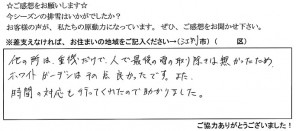 ☆ご感想をお願いします☆
今シーズンの排雪はいかがでしたか？
お客様の声が、私たちの原動力になっています。ぜひ、ご感想をお聞かせ下さい。
※差支えなければ、お住まいの地域をご記入ください→（江別市）（　　　区）
他の所は、重機だけで、人で最後の雪の取り除きは無かったため、
ホワイトガーデンはその点良かったです。また、
時間の対応も行ってくれたので助かりました。
ご協力ありがとうございました！